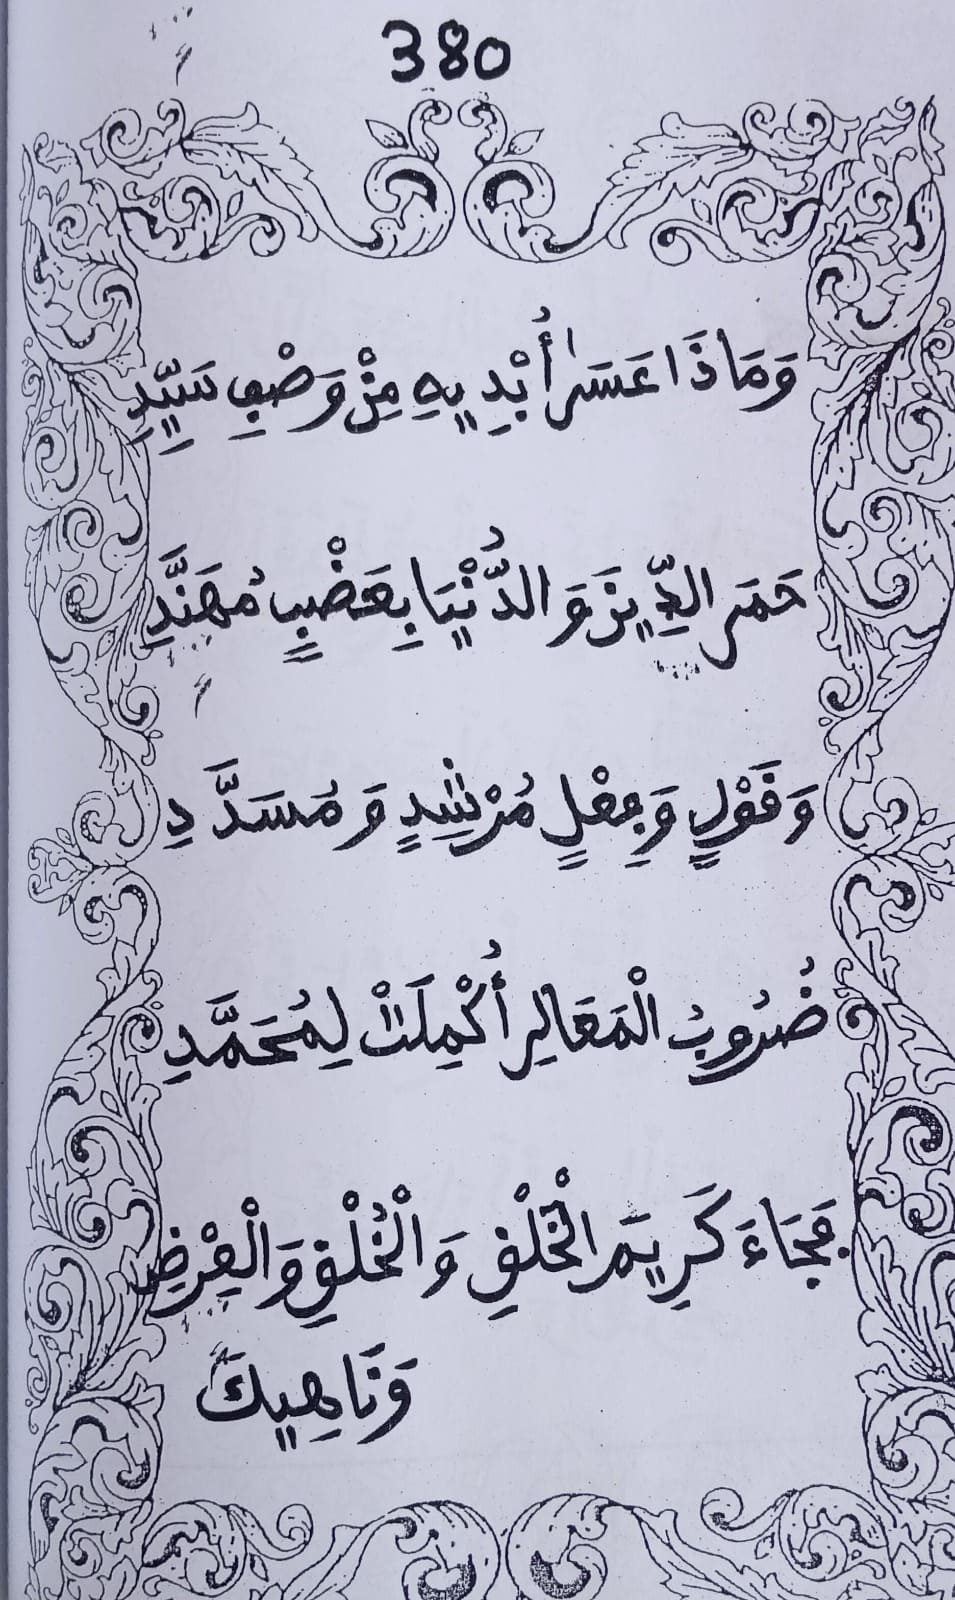 380
وَمَاذَا عَسَىٰ أُبْدِيهِ مِنْ وَصْفِ سَيِّدِ
حَمَى الدِّينَ وَالدُّنْيَا بِعَضْبٍ مُهَنَّدِ
وَقَوْلٍ وَفِعْلٍ مُرْشِدٍ وَمُسَدَّدِ
ضُرُوبُ الْمَعَالِي أُكْمِلَتْ لِمُحَمَّدِ
فَجَاءَ كَرِيمَ الْخَلْقِ وَالْخُلْقِ وَالْعِرْضِ
وَنَاهِيكَ